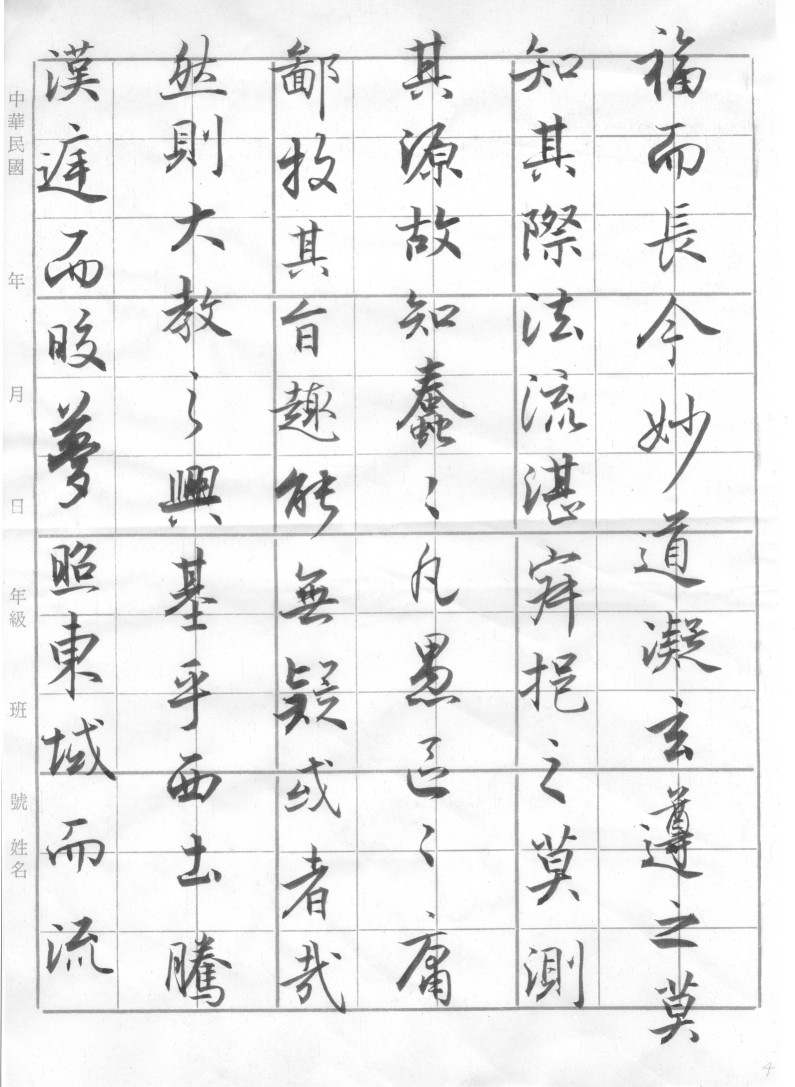 福而長今妙道凝玄遵之莫
知其際法流湛寂挹之莫測
其源故知蠢〻凡愚區〻庸
鄙投其旨趣能無疑或者哉
然則大教之興基乎西土騰
漢庭而晈夢照東域而流
中華民國 年 月 日 年級 班 號 姓名
4